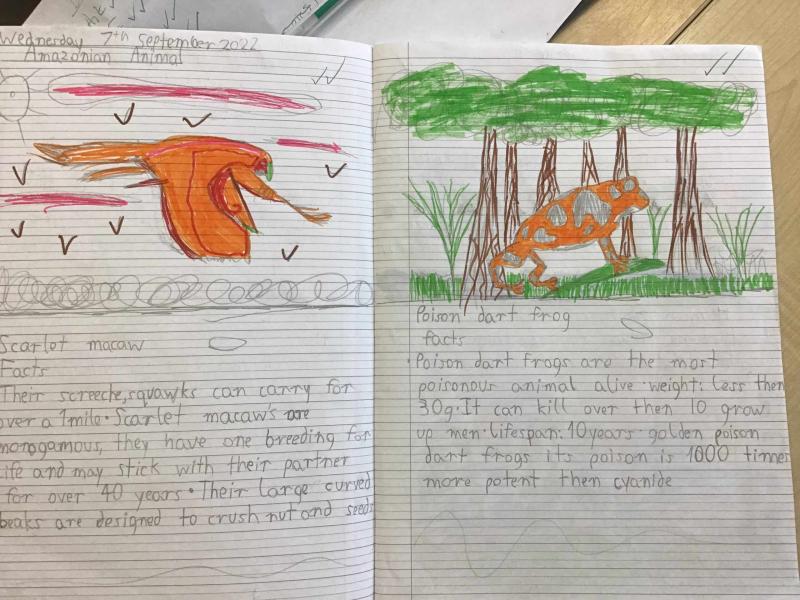 Wednesday 7th September 2022
Amazonian Animal
Scarlet macaw
Facts
Their screeche,squawks can carry for
over a 1mile. Scarlet macaw's are
monogamous, they have one breeding for
life and may stick with their partner
for over 40 years. Their large curved
beaks are designed to crush nut and seeds
Poison dart frog
facts
Poison dart frogs are the most
poisonous animal alive. weight: less then
30g. It can kill over then 10 grow
up men. Lifespan: 10 years. golden poison
dart frogs its poison is 1000 times
more potent then cyanide